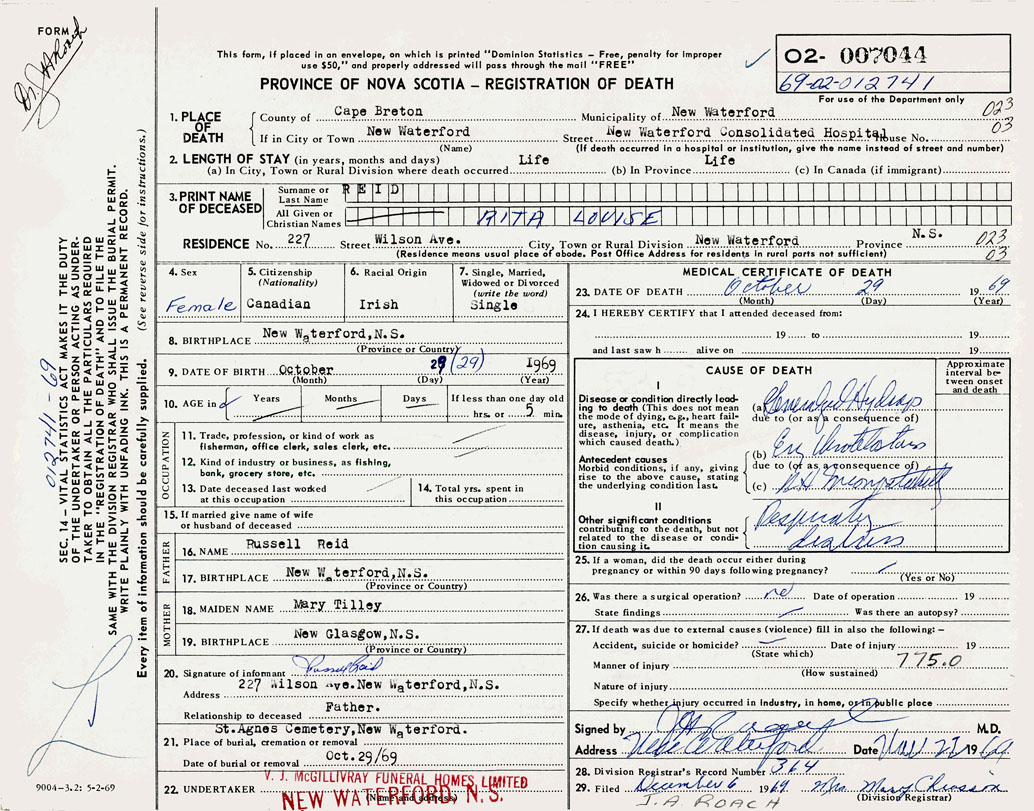 FORM
Dr. JA Roach
This form, if placed in an envelope, on which is printed "Dominion Statistics – Free, penalty for improper
use $50," and properly addressed will pass through the mail "FREE"
PROVINCE OF NOVA SCOTIA – REGISTRATION OF DEATH
02- 007044
69-02-012741
For use of the Department only
1. PLACE OF DEATH
County of Cape Breton Municipality of New Waterford 023
If in City or Town New Waterford Street New Waterford Consolidated Hospital House No. 03
(Name) (If death occurred in a hospital or institution, give the name instead of street and number)
2. LENGTH OF STAY (in years, months and days) Life Life
(a) In City, Town or Rural Division where death occurred (b) In Province (c) In Canada (if immigrant)
3. PRINT NAME OF DECEASED
Surname or Last Name REID
All Given or Christian Names RITA LOUISE
RESIDENCE No. 227 Street Wilson Ave. City, Town or Rural Division New Waterford Province N.S. 023
(Residence means usual place of abode. Post Office Address for residents in rural parts not sufficient) 03
4. Sex
Female
5. Citizenship
(Nationality)
Canadian
6. Racial Origin
Irish
7. Single, Married,
Widowed or Divorced
(write the word)
Single
8. BIRTHPLACE New Waterford, N.S.
(Province or Country)
9. DATE OF BIRTH October 29 (29) 1969
(Month) (Day) (Year)
10. AGE in Years Months Days If less than one day old
hrs. or 5 min.
OCCUPATION
11. Trade, profession, or kind of work as
fisherman, office clerk, sales clerk, etc.
12. Kind of industry or business, as fishing,
bank, grocery store, etc.
13. Date deceased last worked
at this occupation
14. Total yrs. spent in
this occupation
15. If married give name of wife
or husband of deceased
FATHER
16. NAME Russell Reid
17. BIRTHPLACE New Waterford, N.S.
(Province or Country)
MOTHER
18. MAIDEN NAME Mary Tilley
19. BIRTHPLACE New Glasgow, N.S.
(Province or Country)
20. Signature of informant Russell Reid
Address 227 Wilson Ave. New Waterford, N.S.
Relationship to deceased Father.
St. Agnes Cemetery, New Waterford.
21. Place of burial, cremation or removal
Date of burial or removal Oct. 29/69
22. UNDERTAKER V. J. McGILLIVRAY FUNERAL HOMES LIMITED
(Name and address)
NEW WATERFORD, N. S.
MEDICAL CERTIFICATE OF DEATH
23. DATE OF DEATH October 29 1969
(Month) (Day) (Year)
24. I HEREBY CERTIFY that I attended deceased from:
19 to 19
and last saw h alive on 19
CAUSE OF DEATH
Approximate
interval be-
tween onset
and death
I
Disease or condition directly lead-
ing to death (This does not mean
the mode of dying, e.g., heart fail-
ure, asthenia, etc. It means the
disease, injury, or complication
which caused death.)
(a) Generalized Hydrops
due to (or as a consequence of)
Antecedent causes
Morbid conditions, if any, giving
rise to the above cause, stating
the underlying condition last.
(b) Ery
due to (or as a consequence of)
(c) RH Incompatibility
II
Other significant conditions
contributing to the death, but not
related to the disease or condi-
tion causing it.
Respiratory
25. If a woman, did the death occur either during
pregnancy or within 90 days following pregnancy?
(Yes or No)
26. Was there a surgical operation? no Date of operation 19
State findings Was there an autopsy?
27. If death was due to external causes (violence) fill in also the following: –
Accident, suicide or homicide? Date of injury 19
(State which)
Manner of injury 775.0
(How sustained)
Nature of injury
Specify whether injury occurred in Industry, in home, or in public place
Signed by M.D.
Address New Waterford Date Nov 27 1969
28. Division Registrar's Record Number 364
29. Filed December 6 1969 Mrs. Mary
(Division Registrar)
J.A ROACH
012741-69
SEC. 14 – VITAL STATISTICS ACT MAKES IT THE DUTY
OF THE UNDERTAKER OR PERSON ACTING AS UNDER-
TAKER TO OBTAIN ALL THE PARTICULARS REQUIRED
IN THE "REGISTRATION OF DEATH" AND TO FILE THE
SAME WITH THE DIVISION REGISTRAR WHO SHALL ISSUE THE BURIAL PERMIT.
WRITE PLAINLY WITH UNFADING INK. THIS IS A PERMANENT RECORD.
Every item of information should be carefully supplied. (See reverse side for instructions.)
9004-3.2: 5-2-69